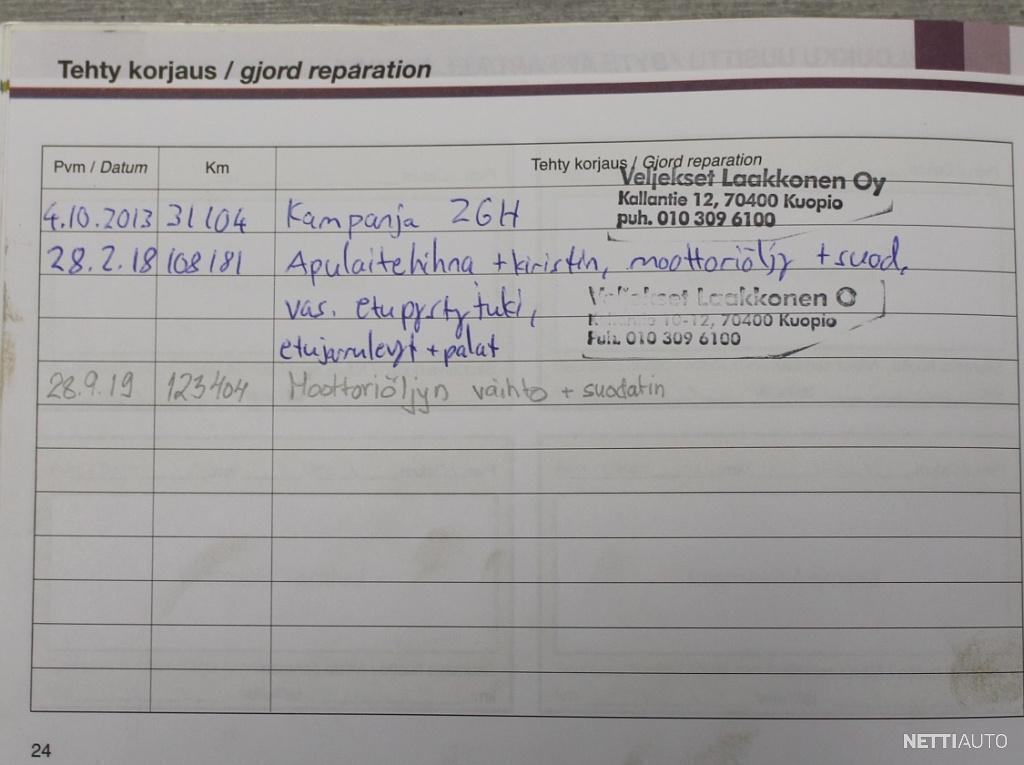 Tehty korjaus / gjord reparation
Pvm / Datum Km Tehty korjaus / Gjord reparation
Veljekset Laakkonen Oy
Kallantie 12, 70400 Kuopio
puh. 010 309 6100
4.10.2013 31104 Kampanja ZGH
28.2.18 108181 Apulaitehihna + kiristin, moottoriöljy + suod,
vas. etupystytuki,
Veljekset Laakkonen O
10-12, 70400 Kuopio
Puh. 010 309 6100
etujarrulevyt + palat
28.9.19 123404 Moottoriöljyn vaihto + suodatin
24
NETTIAUTO